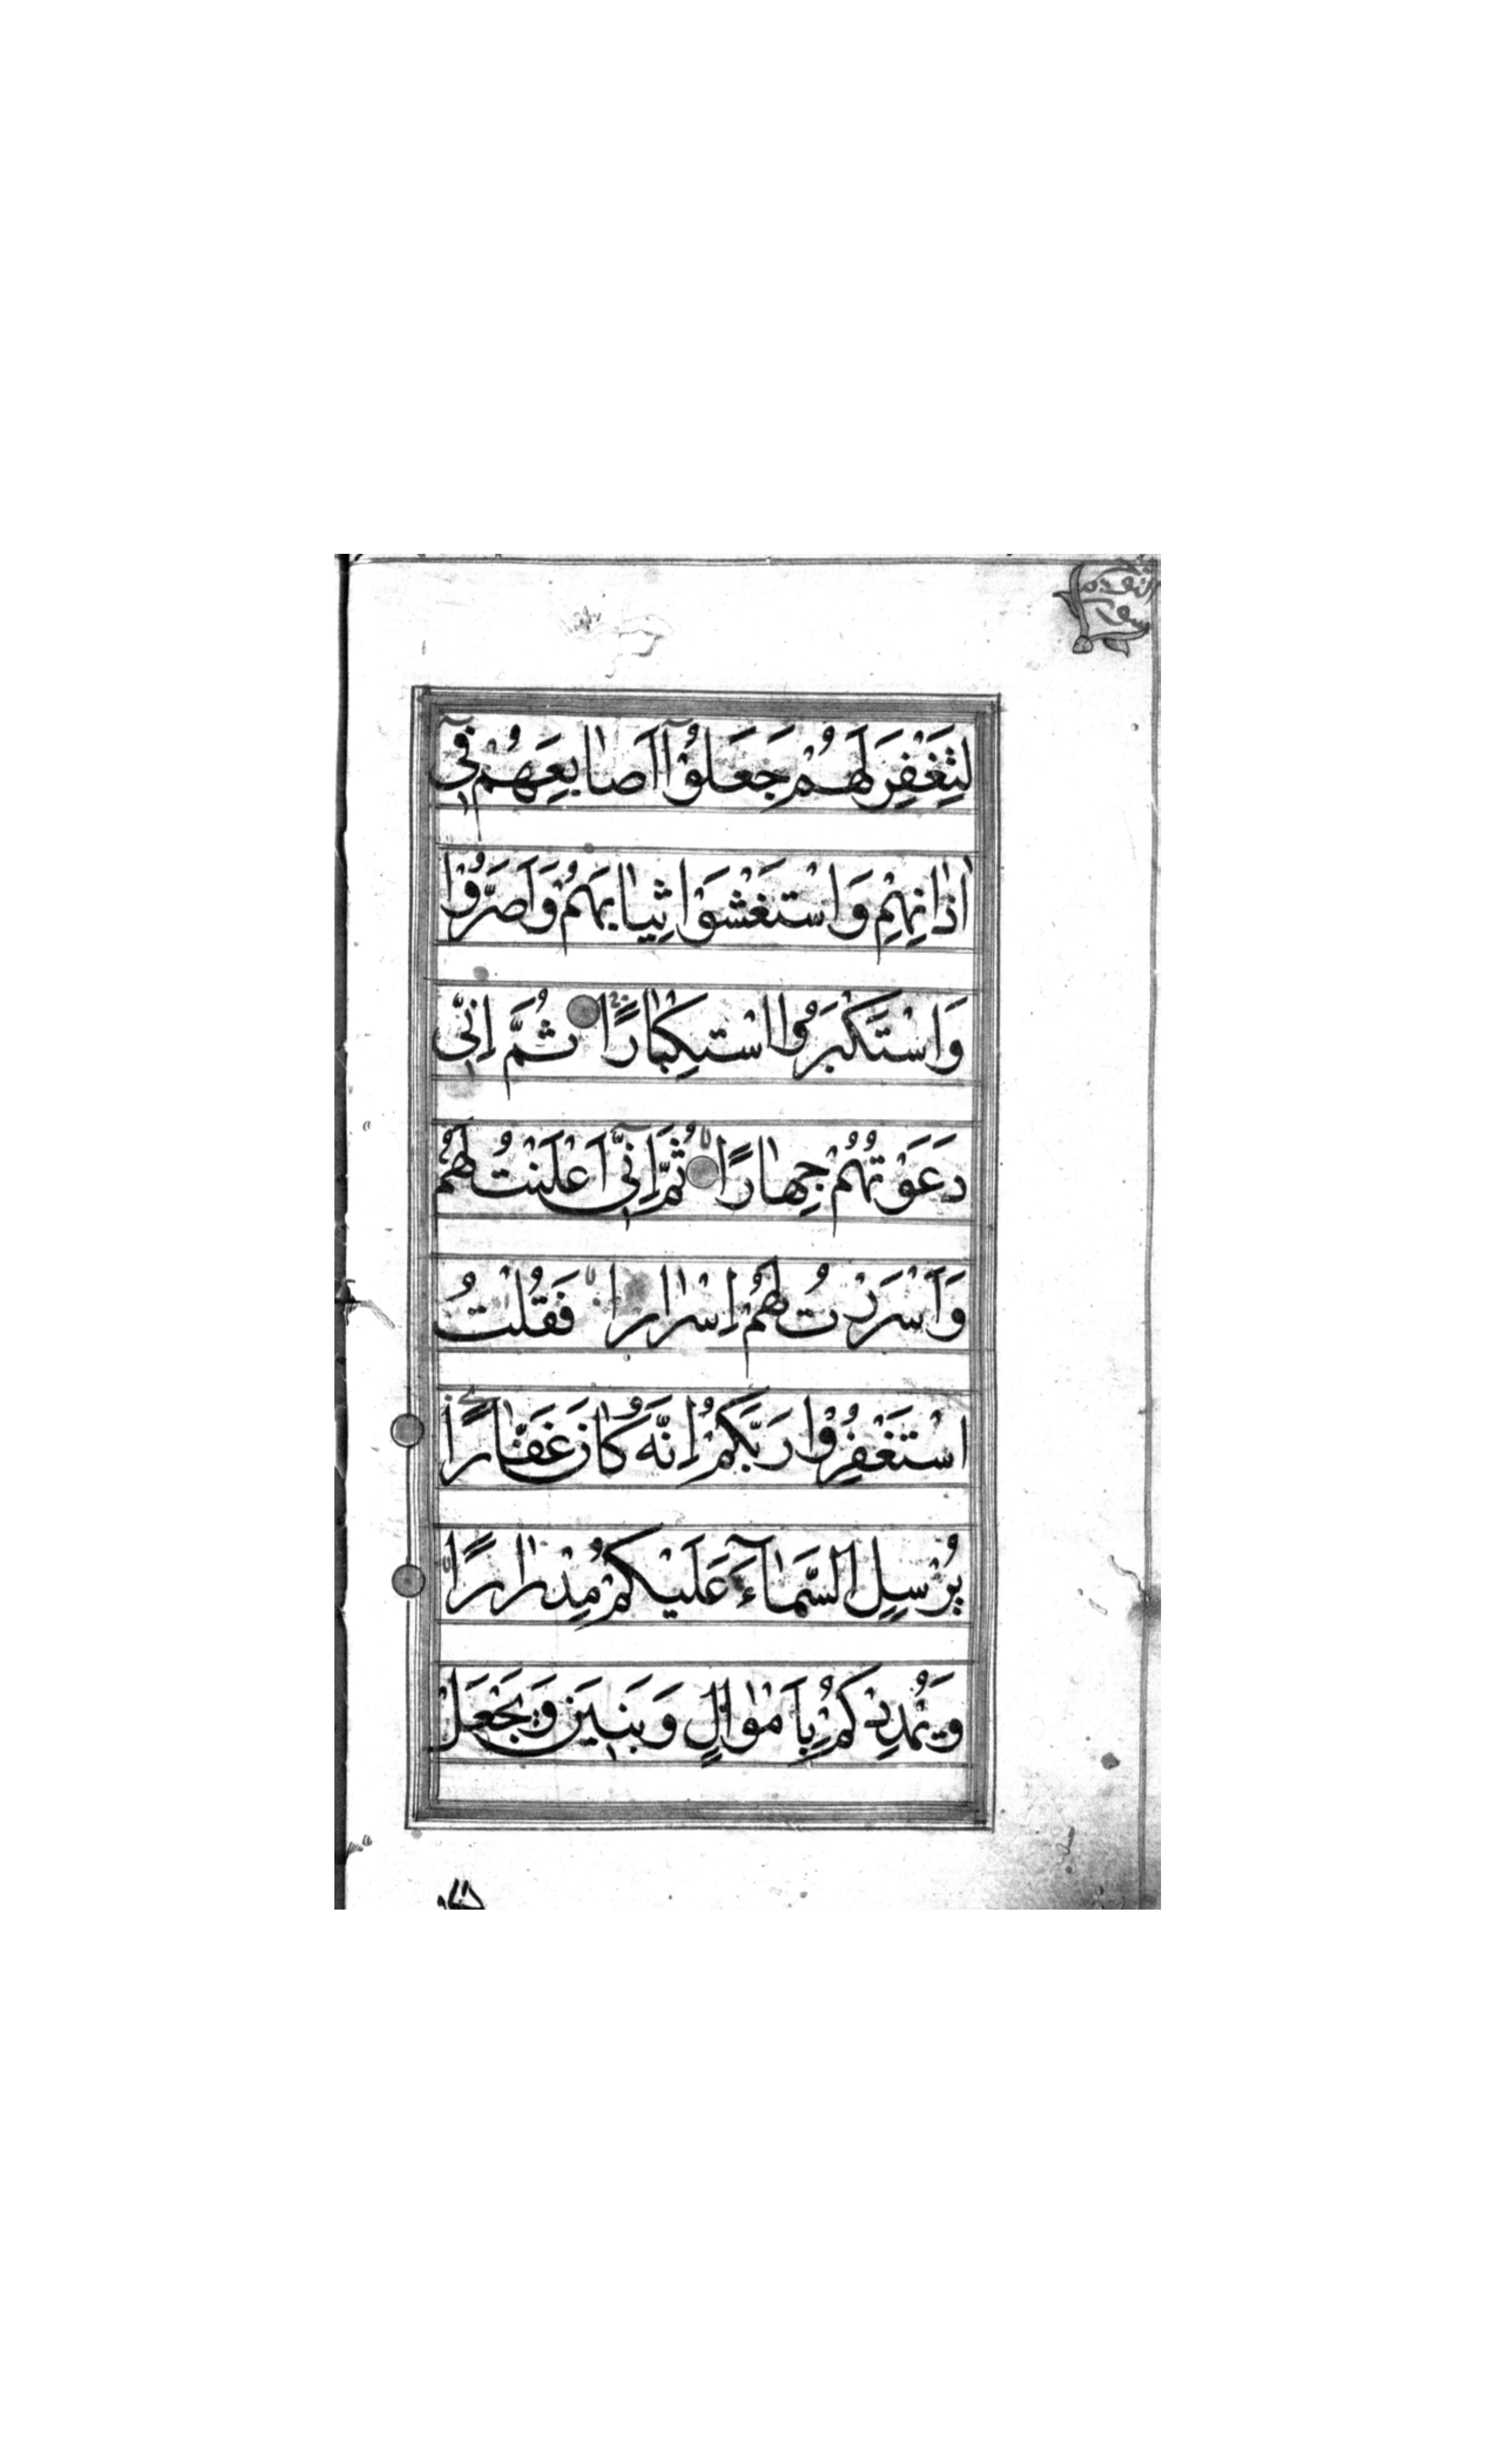 لِتَغْفِرَ لَهُمْ جَعَلُوْٓا اَصَابِعَهُمْ فِيْٓ
اٰذَانِهِمْ وَاسْتَغْشَوْا ثِيَابَهُمْ وَاَصَرُّوْا
وَاسْتَكْبَرُوا اسْتِكْبَارًا ثُمَّ اِنِّيْ
دَعَوْتُهُمْ جِهَارًا ثُمَّ اِنِّيْٓ اَعْلَنْتُ لَهُمْ
وَاَسْرَرْتُ لَهُمْ اِسْرَارًا فَقُلْتُ
اسْتَغْفِرُوْا رَبَّكُمْ اِنَّهُ كَانَ غَفَّارًا
يُرْسِلِ السَّمَآءَ عَلَيْكُمْ مِدْرَارًا
وَيُمْدِدْكُمْ بِاَمْوَالٍ وَبَنِيْنَ وَيَجْعَلْ